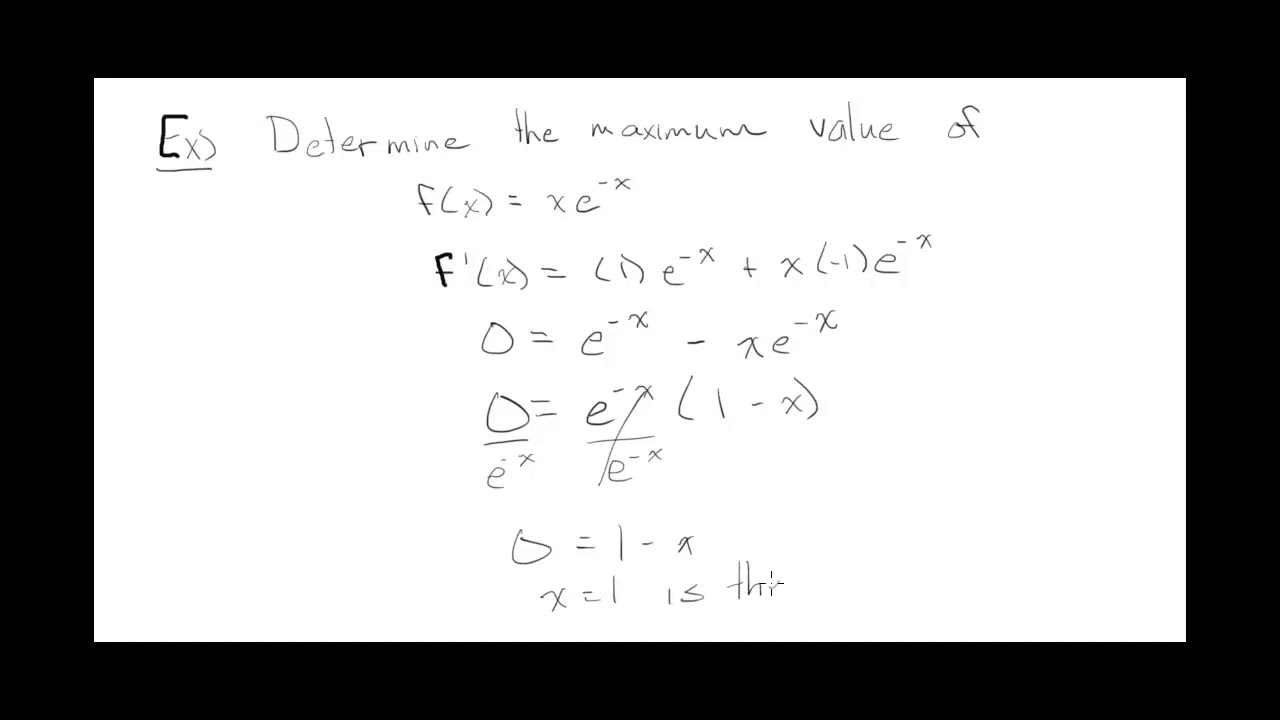 Ex) Determine the maximum value of
f(x) = xe^{-x}
f'(x) = (1)e^{-x} + x(-1)e^{-x}
0 = e^{-x} - xe^{-x}
0/e^{-x} = e^{-x}/e^{-x} (1 - x)
0 = 1 - x
x = 1 is the